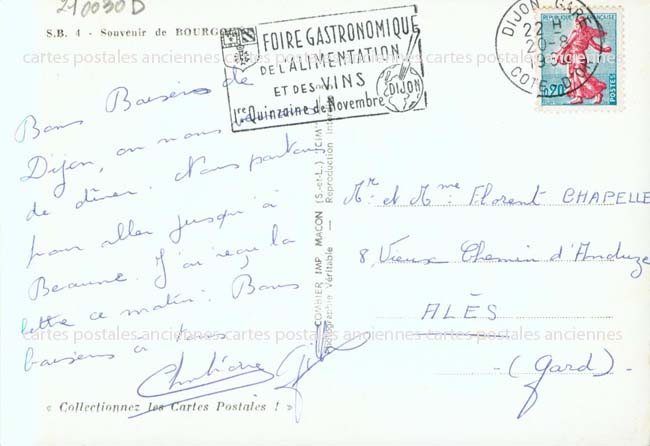 210030D
S.B. 4 - Souvenir de BOURGOGNE
FOIRE GASTRONOMIQUE
DE L'ALIMENTATION
ET DES VINS
1re Quinzaine de Novembre
DIJON
DIJON GARE
22 H
20-8
19
COTE D'OR
REPUBLIQUE FRANÇAISE
0,20
POSTES
Bons Baisers de
Dijon, on nous
de dîner. Nous partons
pour aller jusqu'à
Beaune. J'ai reçu la
lettre ce matin. Bons
baisers à tous
Christiane
COMBIER IMP. MACON (S.-et-L.) "CIM"
Photographie Véritable - Reproduction Inter
Mr. et Mme Florent CHAPELLE
8, Vieux Chemin d'Anduze
ALÈS
- (Gard) -
cartes postales anciennes cartes postales anciennes cartes postales anciennes
cartes postales anciennes cartes postales anciennes cartes postales anciennes
« Collectionnez les Cartes Postales ! »